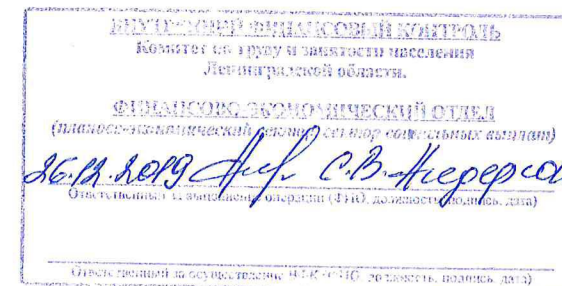 ВНУТРЕННИЙ ФИНАНСОВЫЙ КОНТРОЛЬ
Комитет по труду и занятости населения
Ленинградской области.
ФИНАНСОВО-ЭКОНОМИЧЕСКИЙ ОТДЕЛ
(планово-экономический сектор, сектор социальных выплат)
26.12.2019 С.В.
Ответственный за выполнение операции (ФИО, должность, подпись, дата)
Ответственный за осуществление ВФК (ФИО, должность, подпись, дата)